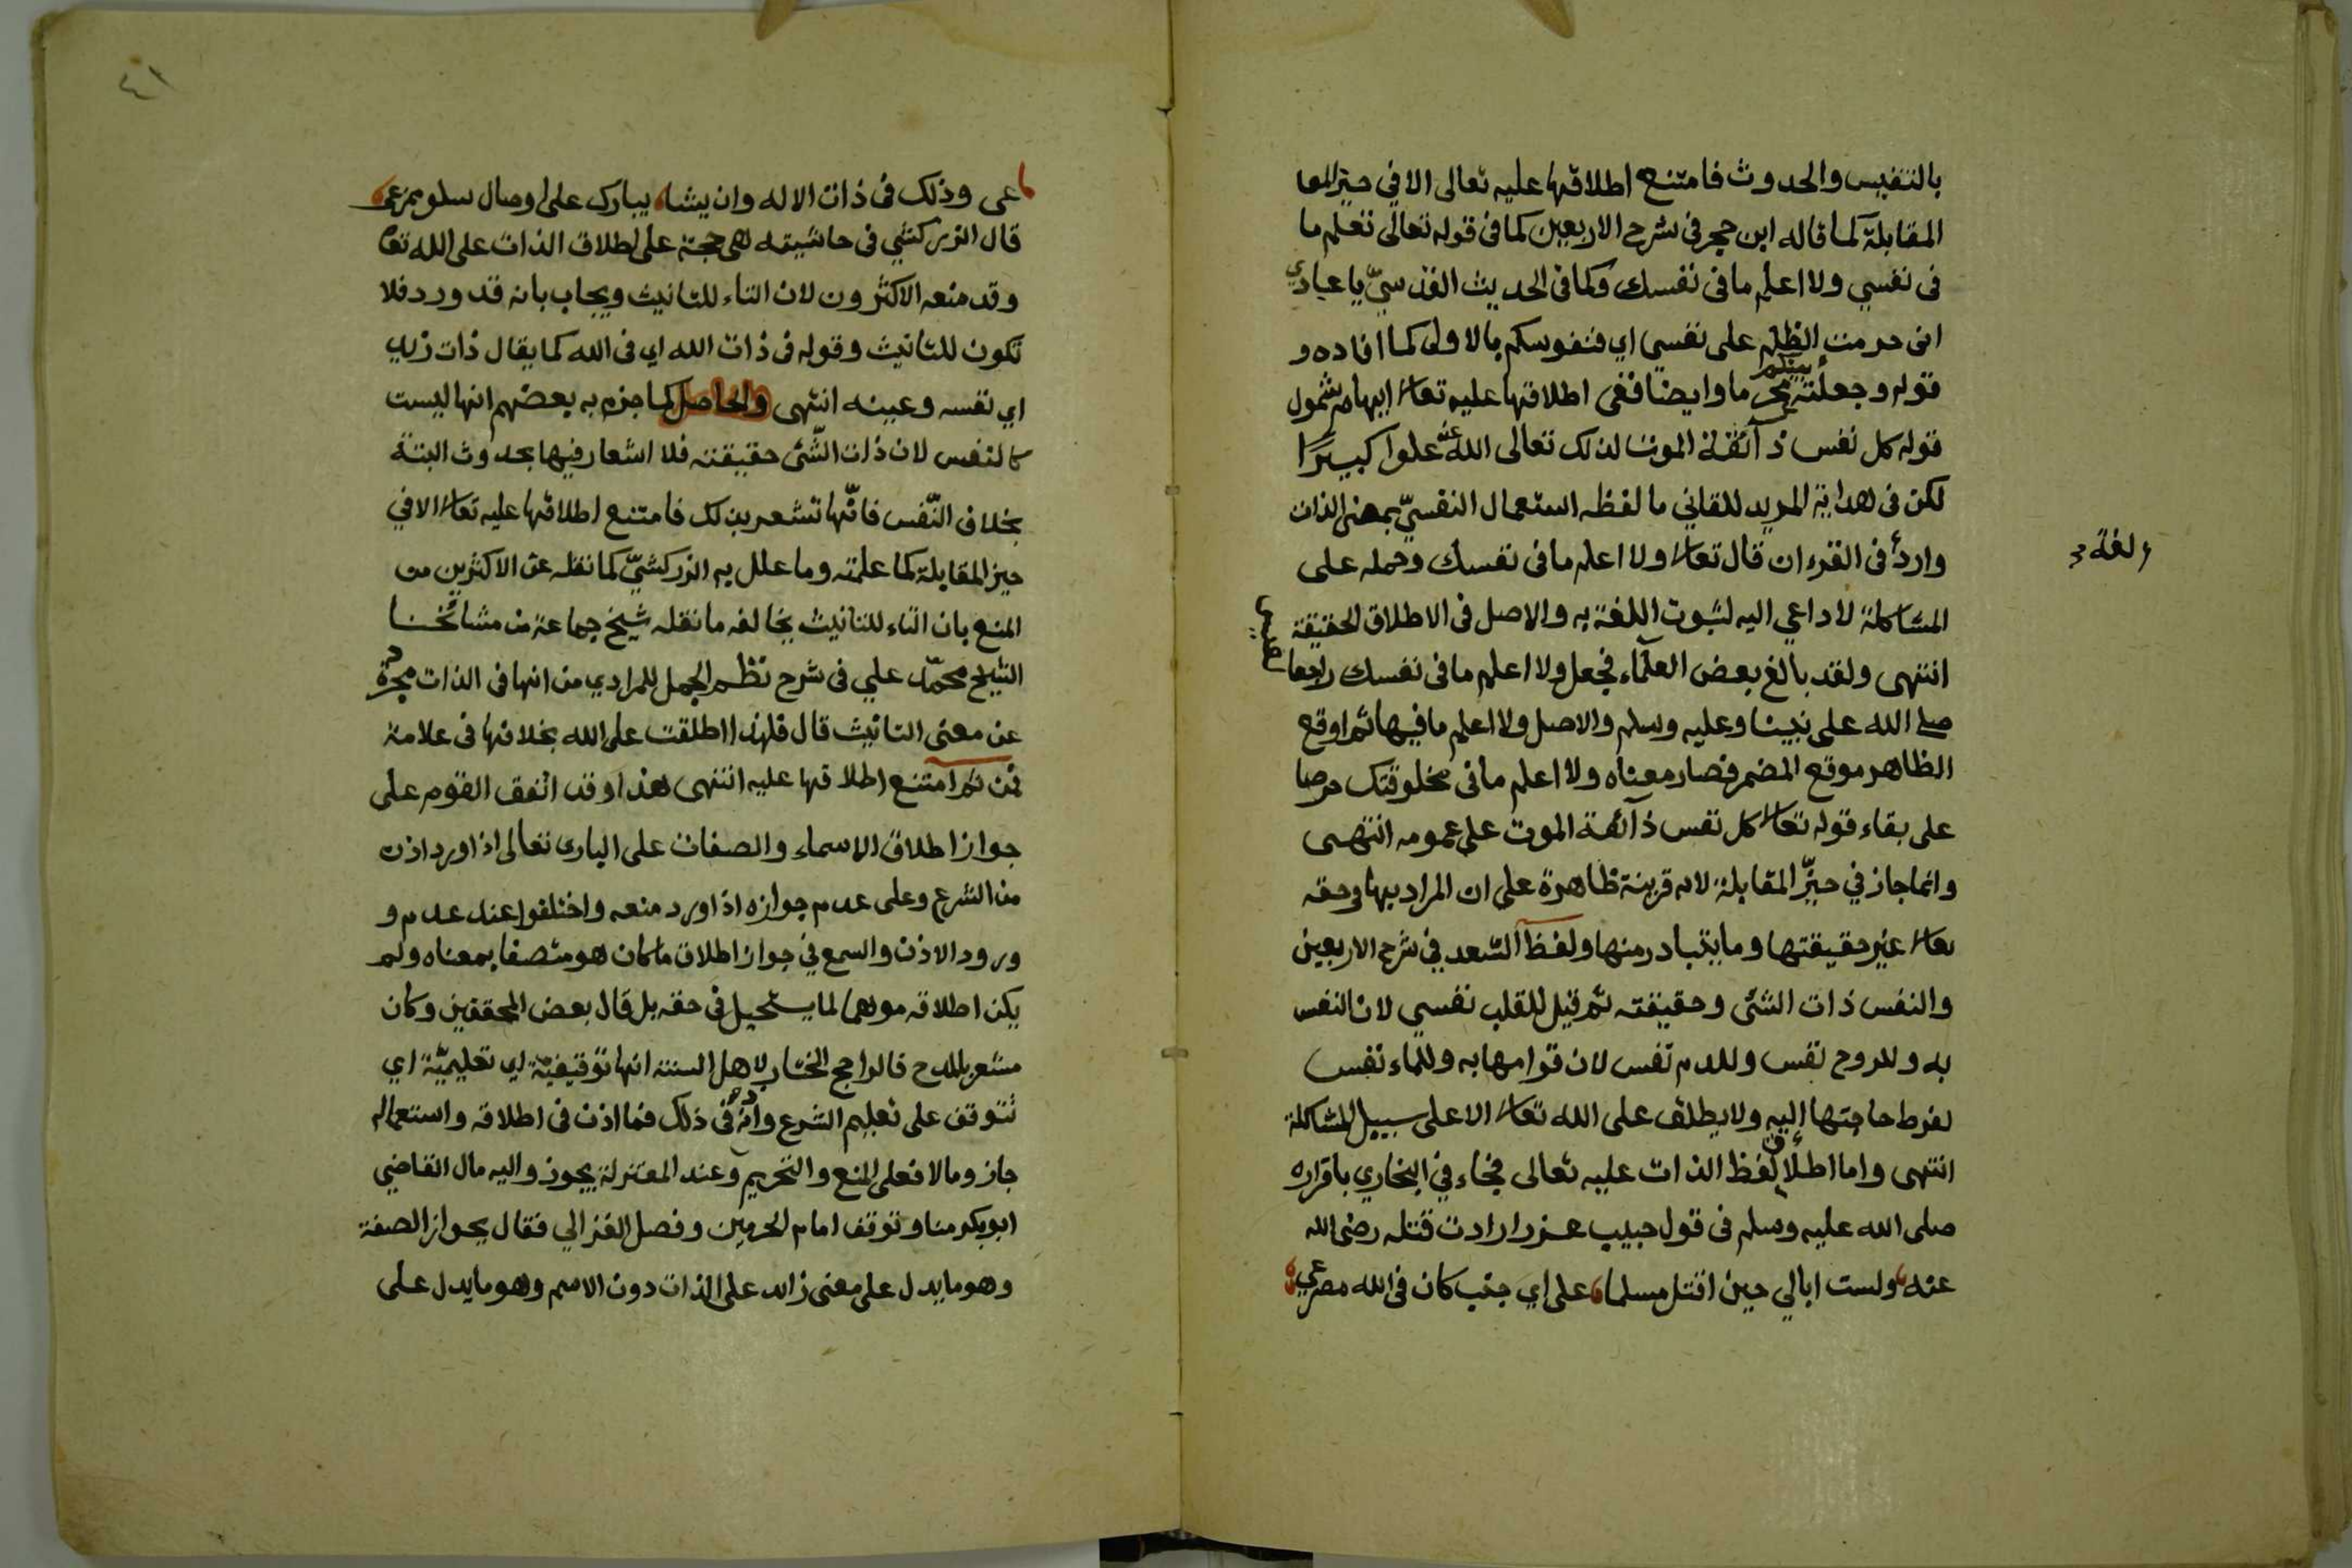 بالتنفيس والحدوث فامتنع اطلاقها عليه تعالى الا في حيز المعا
المقابلة كما قاله ابن حجر في شرح الاربعين كما في قوله تعالى تعلم ما
في نفسي ولا اعلم ما في نفسك وكما في الحديث القدسيّ يا عبادي
اني حرمت الظلم على نفسي اي فنفوسكم بالاولى كما افاده و
قوله وجعلته بينكم محرما وايضا ففي اطلاقها عليه تعالى ايهام شمول
قوله كل نفس ذآئقة الموت لذلك تعالى الله عنه علوا كبيرًا
لكن في هداية المريد للقاني ما لفظه استعمال النفسيّ بمعنى الذات
واردٌ في القرءان قال تعالى ولا اعلم ما في نفسك وحمله على
ولغة
المشاكلة لا داعي اليه لثبوت اللغة به والاصل في الاطلاق الحقيقة
انتهى ولقد بالغ بعض العلمآء فجعل ولا اعلم ما في نفسك راجعا لعيسى
صلى الله على نبينا وعليه وسلم والاصل ولا اعلم ما فيها ثم اوقع
الظاهر موقع المضمر فصار معناه ولا اعلم ما في مخلوقتك حرصا
على بقاء قوله تعالى كل نفس ذآئقة الموت على عمومه انتهى
وانما جاز في حيّز المقابلة لانه قرينة ظاهرة على ان المراد بها في حقه
تعالى غير حقيقتها وما يتبادر منها ولفظ السعد في شرح الاربعين
والنفس ذات الشئ وحقيقته ثم قيل للقلب نفسي لان النفس
به وللروح نفس وللدم نفس لان قوامها به وللماء نفس
لفرط حاجتها إليه ولا يطلق على الله تعالى الا على سبيل المشاكلة
انتهى واما اطلاق لفظ الذات عليه تعالى فجاء في البخاري باقراره
صلى الله عليه وسلم في قول حبيب عند ارادت قتله رضي الله
عنه ولست ابالي حين اقتل مسلما على اي جنب كان في الله مصرعي
٤١
عي وذلك في ذات الاله وان يشا يبارك على اوصال سلو ممزعي
قال الزركشي في حاشيته هي حجة على اطلاق الذات على الله تعا
وقد منعه الاكثرون لان التاء للتانيث ويجاب بانه قد ورد فلا
تكون للتانيث وقوله في ذات الله اي في الله كما يقال ذات زيد
اي نفسه وعينه انتهى والحاصل كما جزم به بعضهم انها ليست
كالنفس لان ذات الشّئ حقيقته فلا اشعار فيها بحدوث البتة
بخلاف النّفس فانّها تشعر بذلك فامتنع اطلاقها عليه تعالى الا في
حيز المقابلة كما علمته وما علل به الزركشيّ كما نقله عن الاكثرين من
المنع بان التاء للتانيث يخالفه ما نقله شيخ جماعة من مشائخنا
الشيخ محمّد علي في شرح نظم الجمل للمرادي من انها في الذات مجردة
عن معنى التانيث قال فلهذا اطلقت على الله بخلافها في علامة
فمن ثم امتنع اطلاقها عليه انتهى هذا وقد اتفق القوم على
جواز اطلاق الاسماء والصفات على الباري تعالى اذا ورد اذن
من الشرع وعلى عدم جوازه اذا ورد منعه واختلفوا عند عدم و
ورود الاذن والسمع في جواز اطلاق ما كان هو متصفا بمعناه ولم
يكن اطلاقه موهما لما يستحيل في حقه بل قال بعض المحققين وكان
مشعر بالمدح فالراجح المختار لاهل السنة انها توقيفيّة اي تعليميّة اي
تتوقف على تعليم الشرع واذنه في ذلك فما اذن في اطلاقه واستعماله
جاز وما لا فعلى المنع والتحريم وعند المعتزلة يجوز واليه مال القاضي
ابو بكر منا وتوقف امام الحرمين وفصل الغزالي فقال بجواز الصفة
وهو ما يدل على معنى زائد على الذات دون الاسم وهو ما يدل على